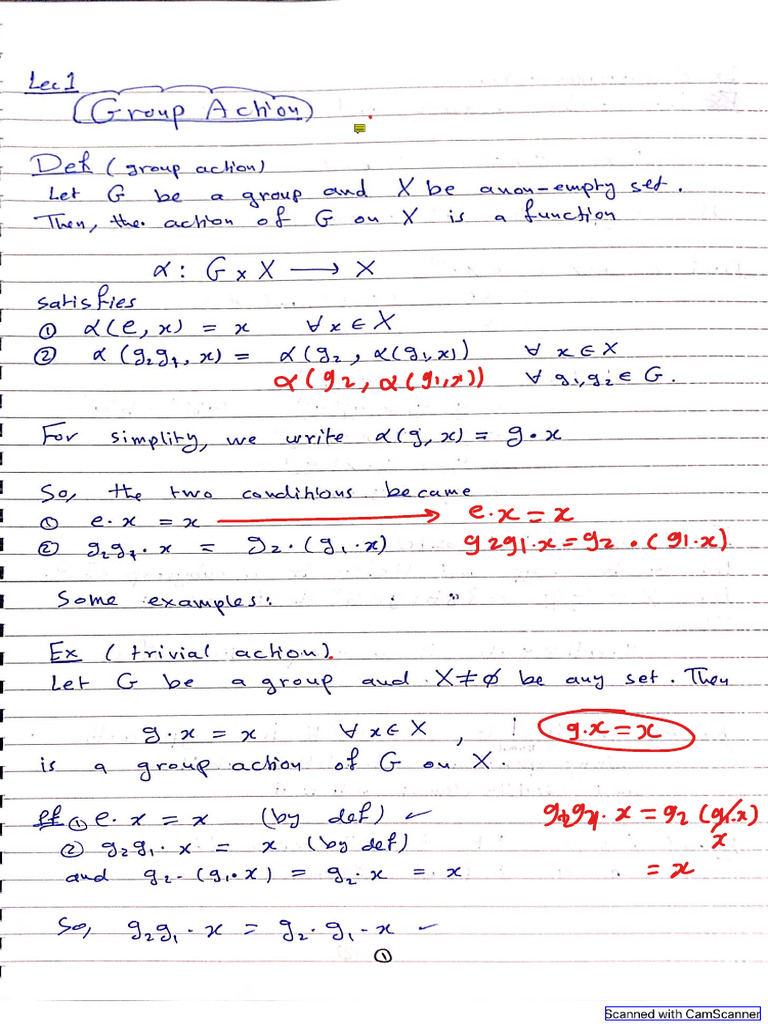 Lec 1
(Group Action)
Def (group action)
Let G be a group and X be a non-empty set.
Then, the action of G on X is a function
α : G x X ⟶ X
satisfies
① α(e, x) = x ∀ x ∈ X
② α(g₂g₁, x) = α(g₂, α(g₁,x)) ∀ x ∈ X
α(g2, α(g1,x)) ∀ g₁,g₂ ∈ G.
For simplity, we write α(g, x) = g · x
So, the two conditions became
① e · x = x ⟶ e.x = x
② g₂g₁ · x = g₂ · (g₁ · x) g2g1.x = g2 . (g1.x)
Some examples:
Ex (trivial action).
Let G be a group and X ≠ ∅ be any set. Then
g · x = x ∀ x ∈ X , g.x = x
is a group action of G on X.
Pf ① e · x = x (by def) ✓ g2g1 . x = g2 (g1.x)
② g₂g₁ · x = x (by def) x
and g₂ · (g₁ · x) = g₂ · x = x = x
So, g₂g₁ · x = g₂ · g₁ · x ✓
①
Scanned with CamScanner